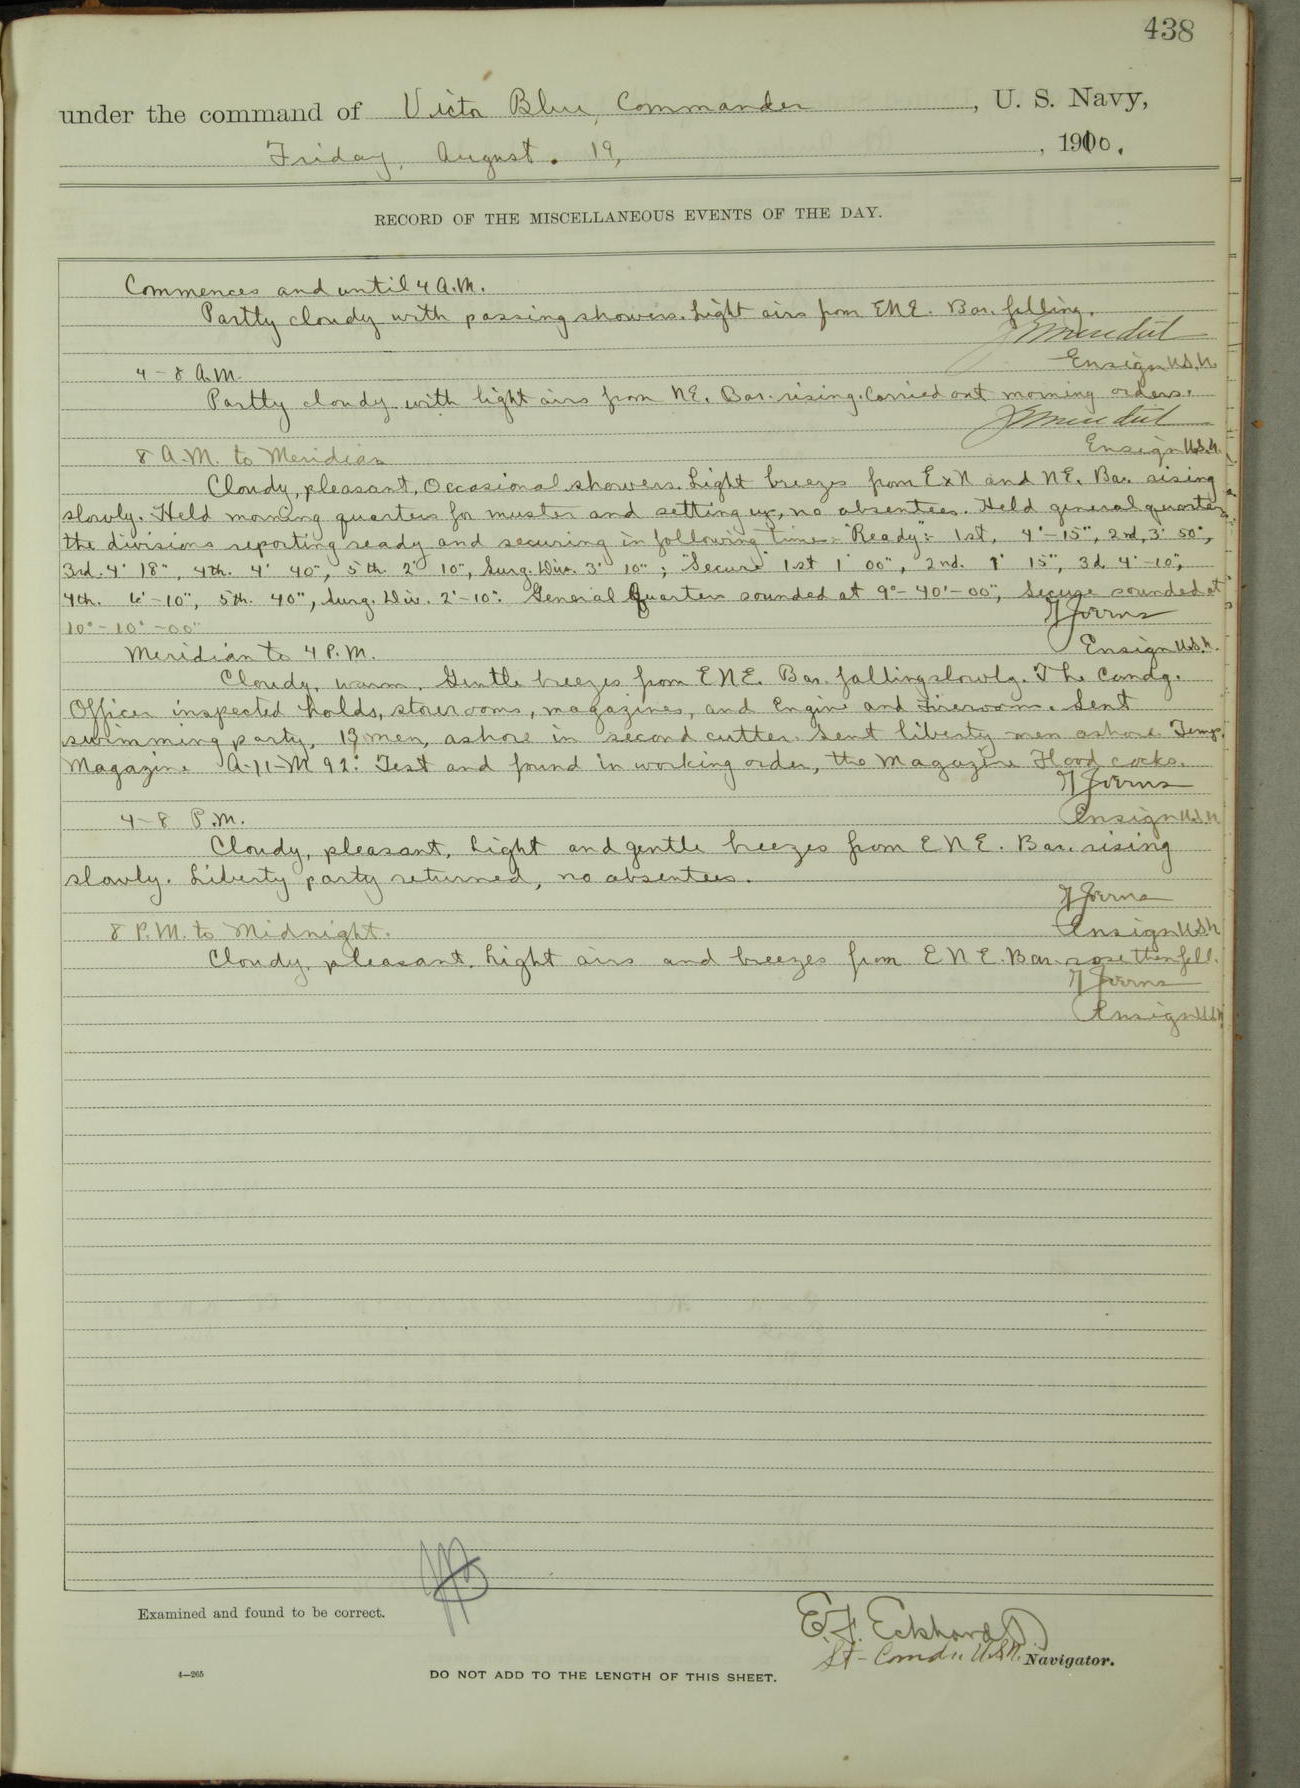 438
under the command of Victor Blue, Commander, U. S. Navy,
Friday, August. 19, 1910.
RECORD OF THE MISCELLANEOUS EVENTS OF THE DAY.
Commences and until 4 A.M.
Partly cloudy with passing showers. Light airs from ENE. Bar. falling.
Ensign U.S.N.
4-8 A.M.
Partly cloudy with light airs from NE. Bar. rising. Carried out morning orders.
Ensign U.S.N.
8 A.M. to Meridian
Cloudy, pleasant. Occasional showers. Light breezes from ExN and NE. Bar. rising
slowly. Held morning quarters for muster and setting up, no absentees. Held general quarters
the divisions reporting ready and securing in following time:- "Ready":- 1st, 4'-15", 2nd, 3' 50",
3rd. 4' 18", 4th. 4' 40", 5th. 2' 10", Surg. Div. 3' 10"; "Secure" 1st 1' 00", 2nd. 1' 15", 3d 4'-10",
4th. 6'-10", 5th. 40", Surg. Div. 2'-10". General Quarters sounded at 9°-40'-00", Secure sounded at
10°-10'-00"
Ensign U.S.N.
Meridian to 4 P.M.
Cloudy, warm. Gentle breezes from ENE. Bar. falling slowly. The Comdg.
Officer inspected holds, storerooms, magazines, and Engine and Fireroom. Sent
swimming party, 19 men, ashore in second cutter. Sent liberty men ashore. Temp.
Magazine A-11-M 92°. Test and found in working order, the Magazine Flood cocks.
Ensign U.S.N.
4-8 P.M.
Cloudy, pleasant, light and gentle breezes from ENE. Bar. rising
slowly. Liberty party returned, no absentees.
Ensign U.S.N.
8 P.M. to Midnight.
Cloudy, pleasant. Light airs and breezes from ENE. Bar. rose then fell.
Ensign U.S.N.
Examined and found to be correct.
E. F. Eckhardt
Lt-Comdr. U.S.N. Navigator.
4—265
DO NOT ADD TO THE LENGTH OF THIS SHEET.